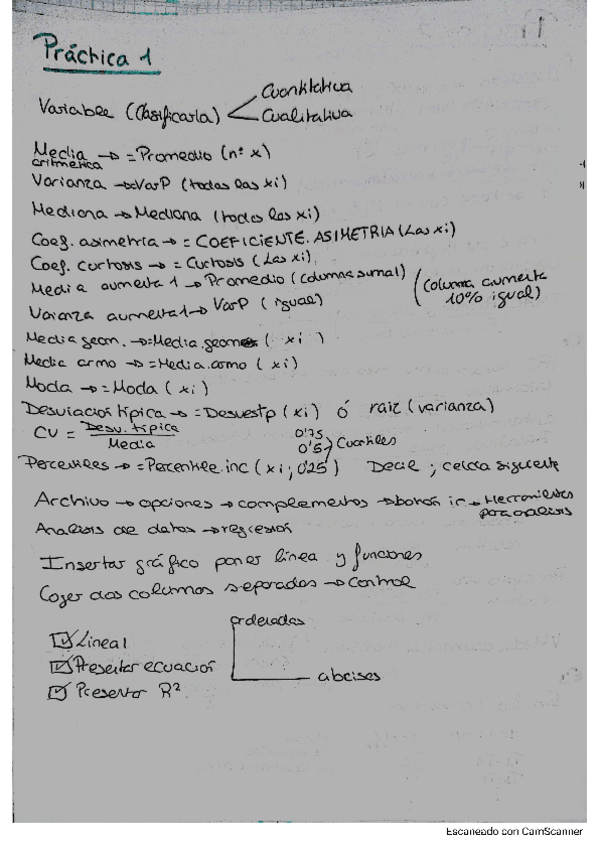 Práctica 1
Variable (Clasificarla) Cuantitativa
Cualitativa
Media → = Promedio (nº x)
aritmética
Varianza → VarP (todas las xi)
Mediana → Mediana (todos las xi)
Coef. asimetría → = COEFICIENTE.ASIMETRIA (Las xi)
Coef. curtosis → = Curtosis (Las xi)
Media aumenta 1 → Promedio (columna suma1) (columna aumenta
10% igual)
Varianza aumenta 1 → VarP (igual)
Media geom. → = Media.geom ( xi )
Media armo → = Media.armo ( xi )
Moda → = Moda ( xi )
Desviación típica → = Desvestp (xi) ó raiz (varianza)
CV = Desv. típica / Media
0'75
0'5 Cuartiles
Percentiles → = Percentile.inc (xi ; 0'25) Decil ; celda siguiente
Archivo → opciones → complementos → botón ir → Herramientas
para análisis
Analisis de datos → regresión
Insertar gráfico poner línea y funciones
Coger dos columnas separadas → Control
ordenadas
☑ Lineal
☑ Presentar ecuación
abcises
☑ Presentar R²
Escaneado con CamScanner